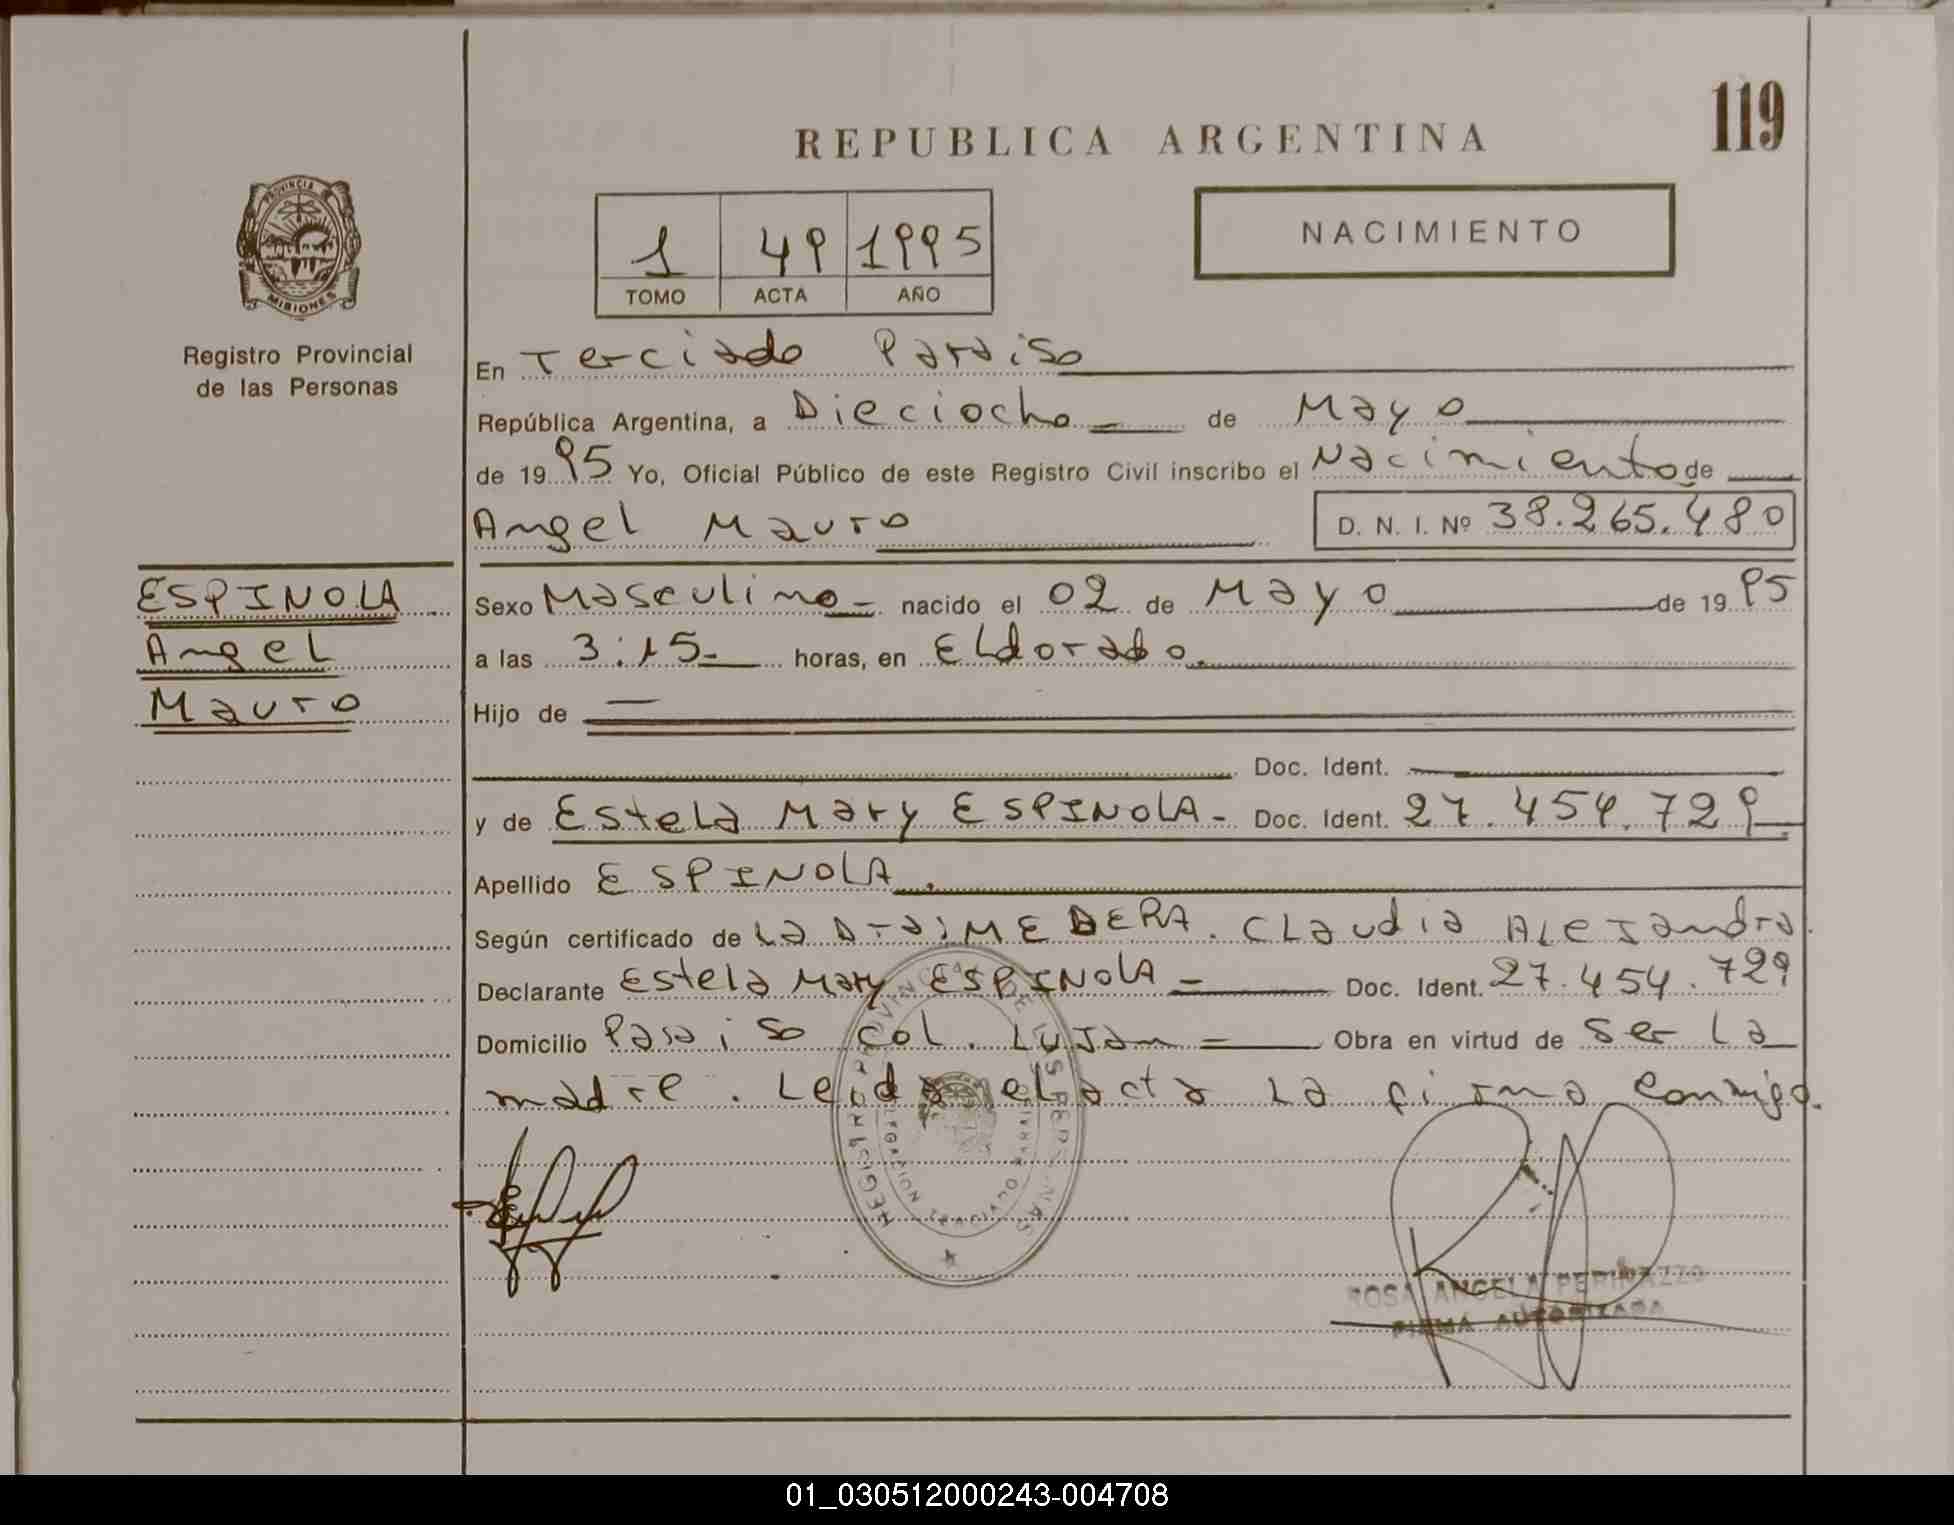 119
REPUBLICA ARGENTINA
PROVINCIA
MISIONES
Registro Provincial
de las Personas
1 49 1995
TOMO ACTA AÑO
NACIMIENTO
En Terciado Paraiso
República Argentina, a Dieciocho de Mayo
de 1995 Yo, Oficial Público de este Registro Civil inscribo el Nacimiento de
Angel Mauro D. N. I. Nº 38.265.480
ESPINOLA
Angel
Mauro
Sexo Masculino nacido el 02 de Mayo de 1995
a las 3:15 horas, en Eldorado.
Hijo de
Doc. Ident.
y de Estela Mary ESPINOLA - Doc. Ident. 27.454.729
Apellido ESPINOLA.
Según certificado de La Claudia Alejandra.
Declarante Estela Mary ESPINOLA = Doc. Ident. 27.454.729
Domicilio Paraiso Col. Lujan = Obra en virtud de ser la
madre. Leida el acta la firma conmigo.
ROSA ANGELA
FIRMA AUTORIZADA
01_030512000243-004708